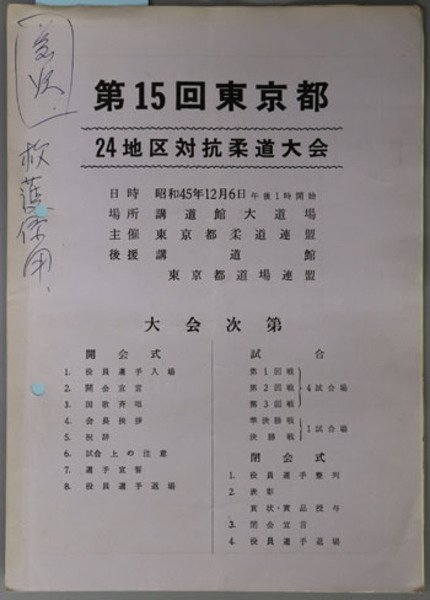 救護係用、
第15回東京都
24地区対抗柔道大会
日時 昭和45年12月6日 午後1時開始
場所 講道館大道場
主催 東京都柔道連盟
後援 講道館
東京都道場連盟
大会次第
開会式
1. 役員選手入場
2. 開会宣言
3. 国歌斉唱
4. 会長挨拶
5. 祝辞
6. 試合上の注意
7. 選手宣誓
8. 役員選手退場
試合
第1回戦
第2回戦 4試合場
第3回戦
準決勝戦
決勝戦 1試合場
閉会式
1. 役員選手整列
2. 表彰
賞状・賞品授与
3. 閉会宣言
4. 役員選手退場